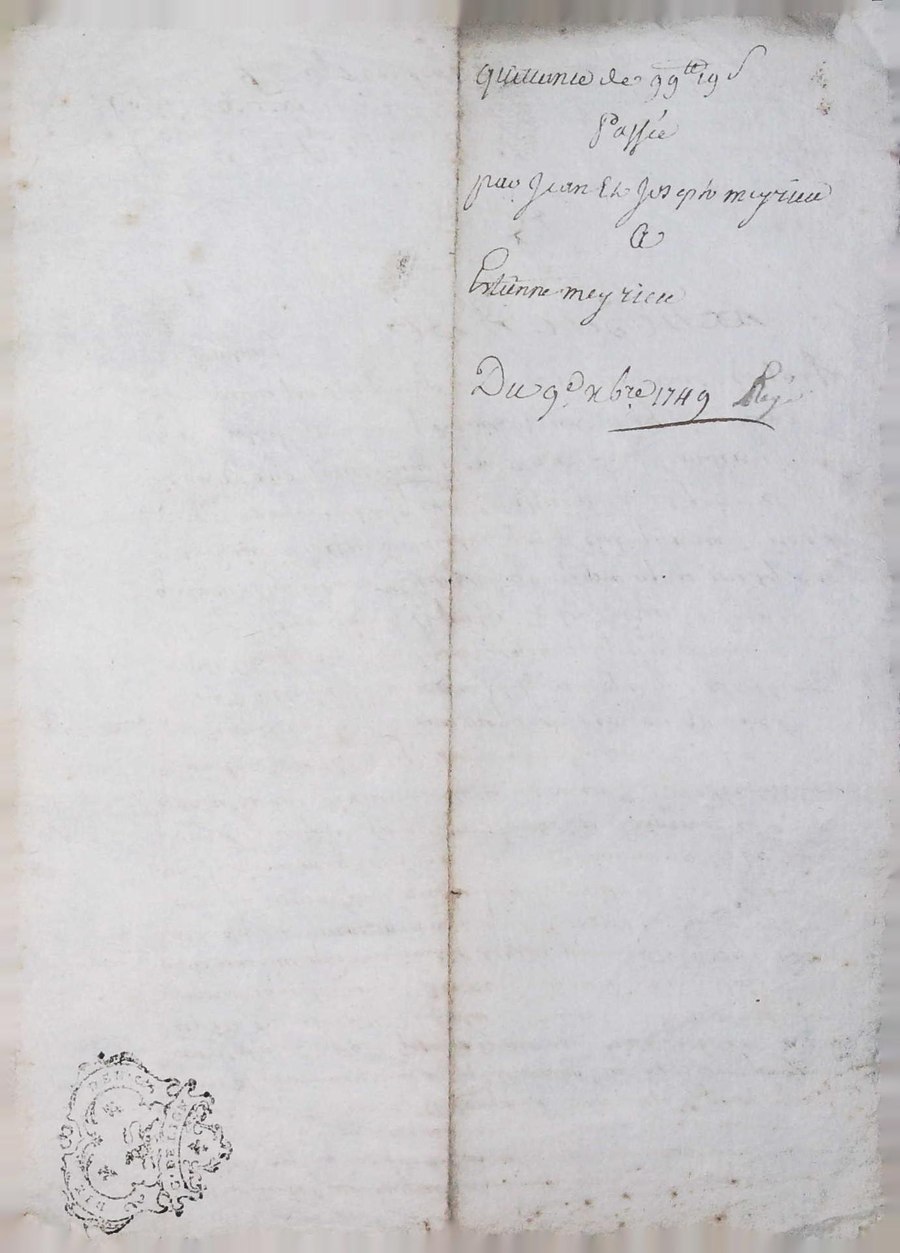 quittance de 99ᵗᵗ 19ˢ
Passée
par Jean Et Joseph meyrieu
A
Estienne meyrieu
Du 9ᵉ xbre 1749